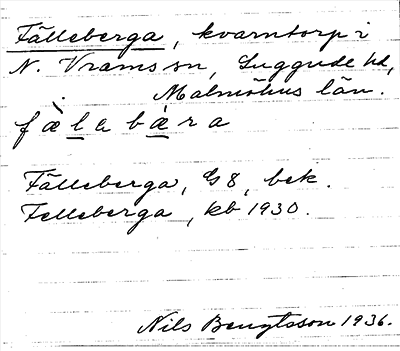 Fälleberga, kvarntorp i
N. Vrams sn, Luggude hd,
Malmöhus län.
fælabæra
Fälleberga, G 8, bek.
Felleberga, kb 1930.
Nils Bengtsson 1936.